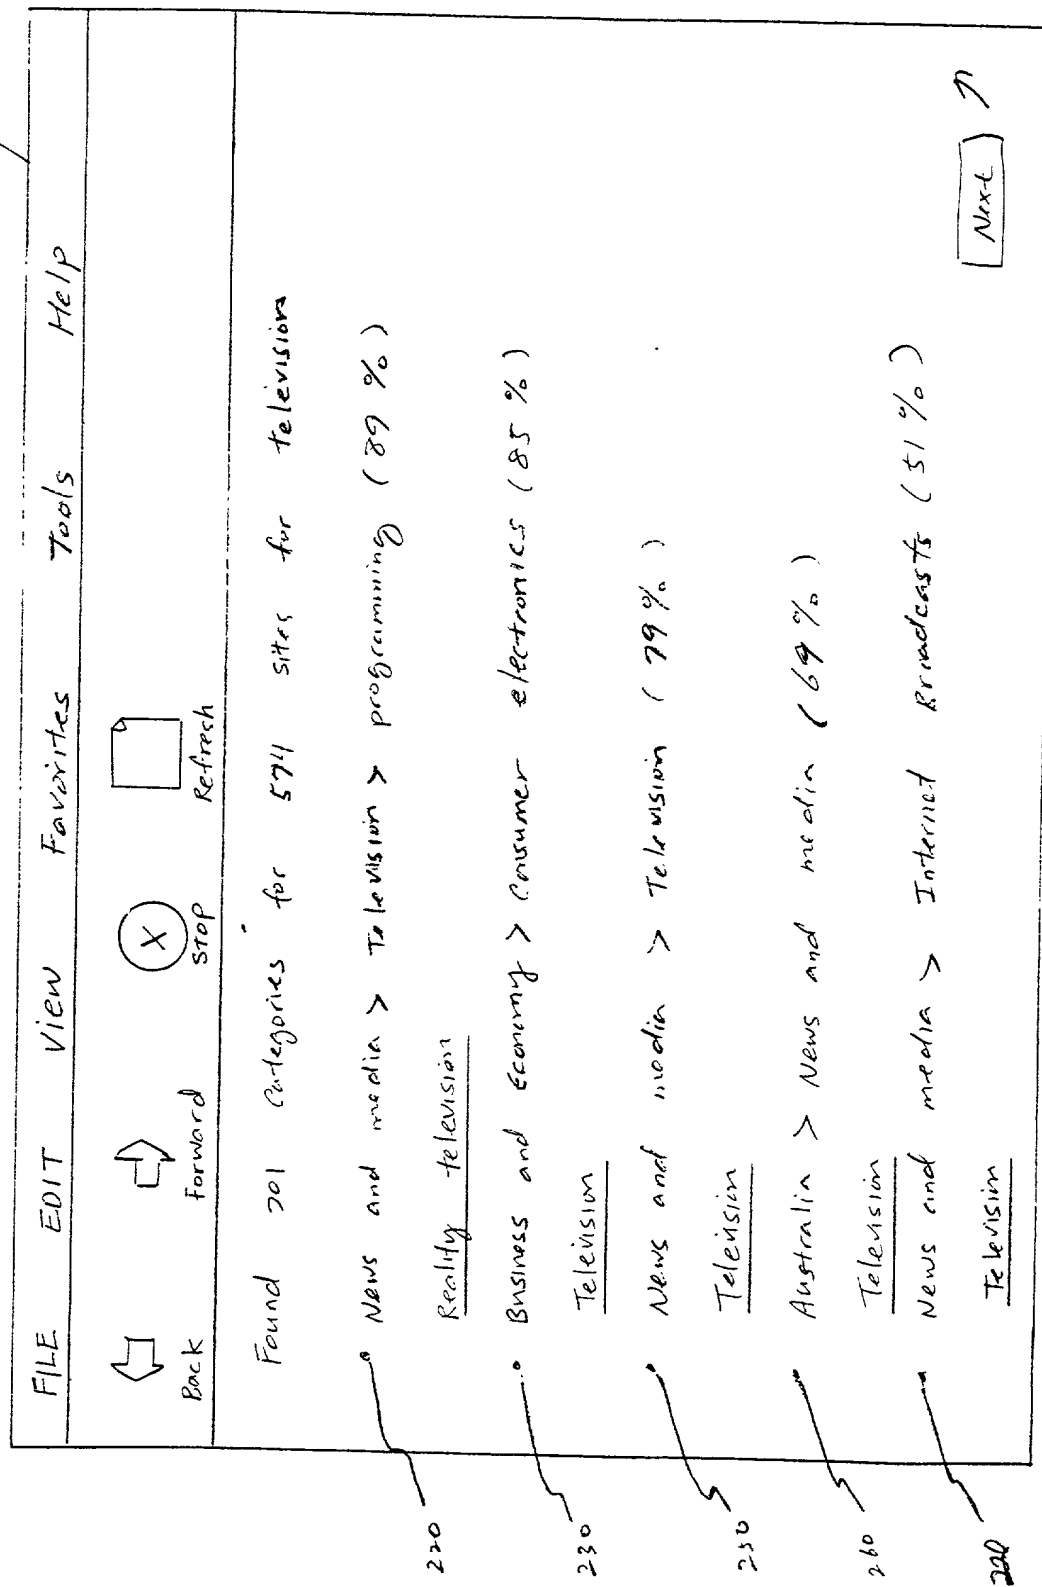 FILE EDIT View Favorites Tools Help
Back Forward Stop Refresh
Found 201 Categories for 574 sites for television
220 News and media > Television > programming (89 %)
Reality television
230 Business and Economy > Consumer electronics (85 %)
Television
250 News and media > Television (79 %)
Television
260 Australia > News and media (69 %)
Television
News and media > Internet Broadcasts (51 %)
Television
Next